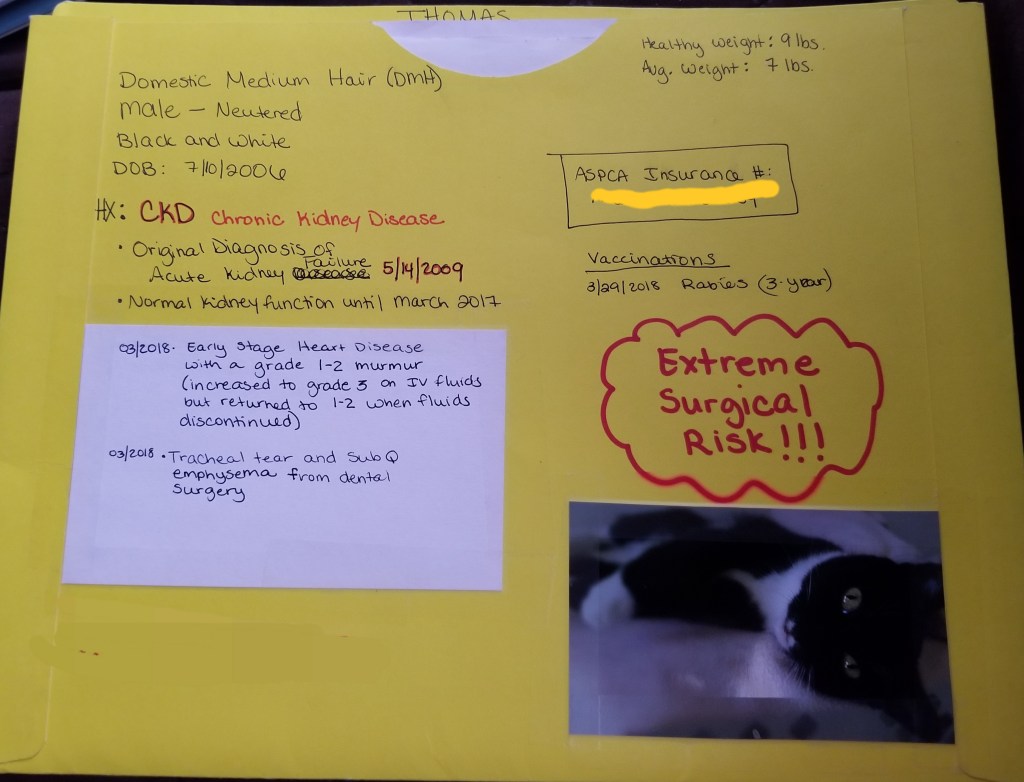 THOMAS
Healthy weight: 9 lbs.
Avg. weight: 7 lbs.
Domestic Medium Hair (DMH)
Male - Neutered
Black and White
DOB: 7/10/2006
ASPCA Insurance #:
HX: CKD Chronic Kidney Disease
• Original Diagnosis of
Acute Kidney Failure 5/14/2009
• Normal kidney function until March 2017
Vaccinations
3/29/2018 Rabies (3-year)
03/2018 • Early Stage Heart Disease
with a grade 1-2 murmur
(increased to grade 3 on IV fluids
but returned to 1-2 when fluids
discontinued)
03/2018 • Tracheal tear and SubQ
emphysema from dental
surgery
Extreme
Surgical
Risk!!!